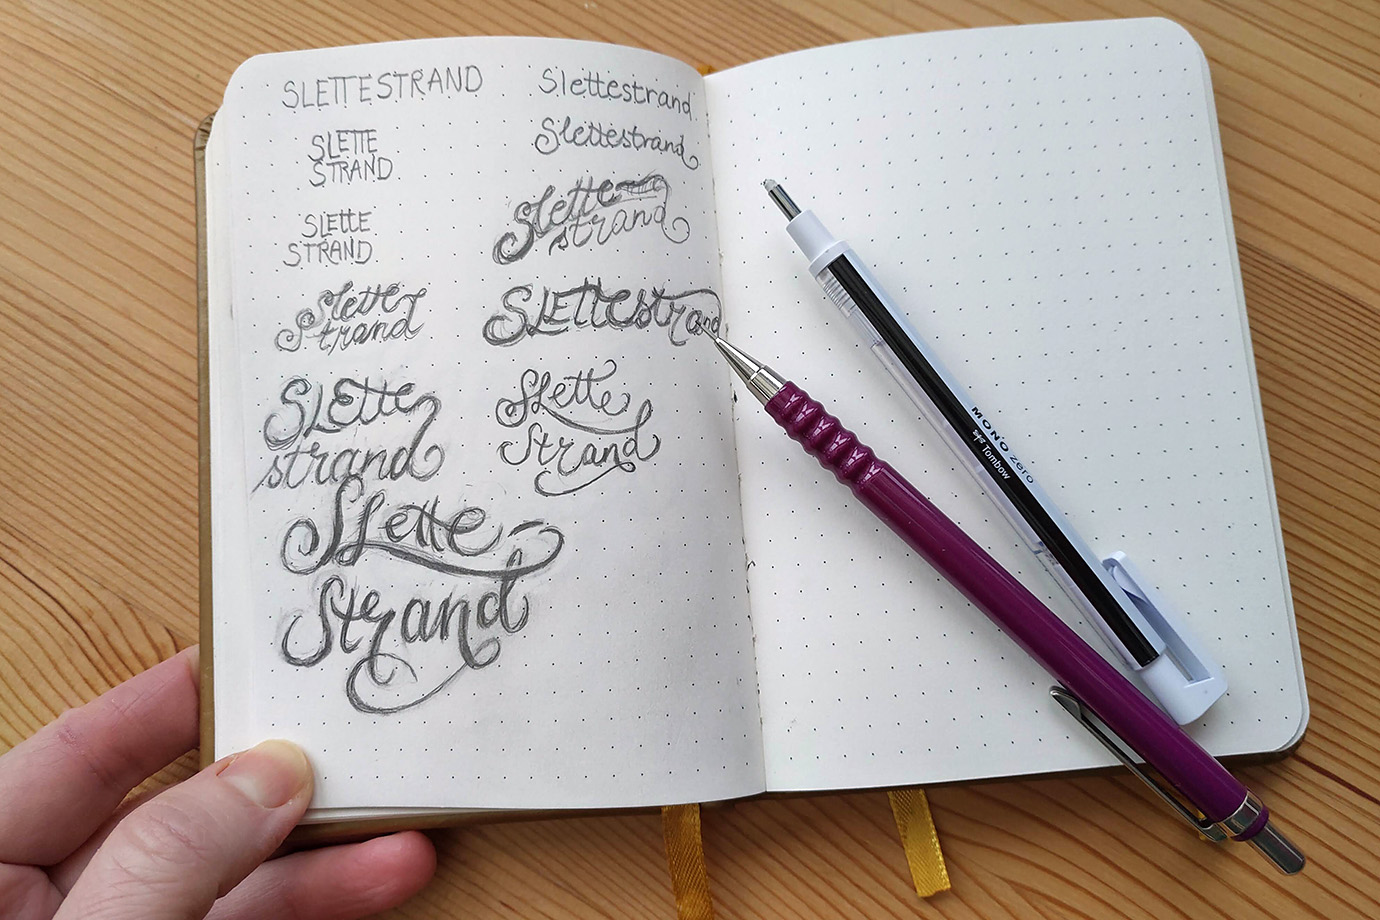 SLETTESTRAND
SLETTE
STRAND
SLETTE
STRAND
Slette
strand
SLEtte
strand
SLette
Strand
Slettestrand
Slettestrand
Slette
strand
SLETTEstrand
SLette
Strand
MONO zero
Tombow